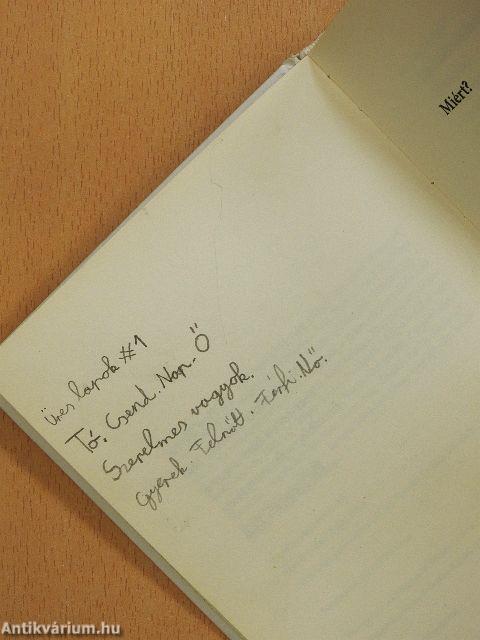 Miért?
Üres lapok #1
Tó. Csend. Nap. Ő
Szerelmes vagyok.
Gyerek. Felnőtt. Férfi. Nő.
Antikvárium.hu